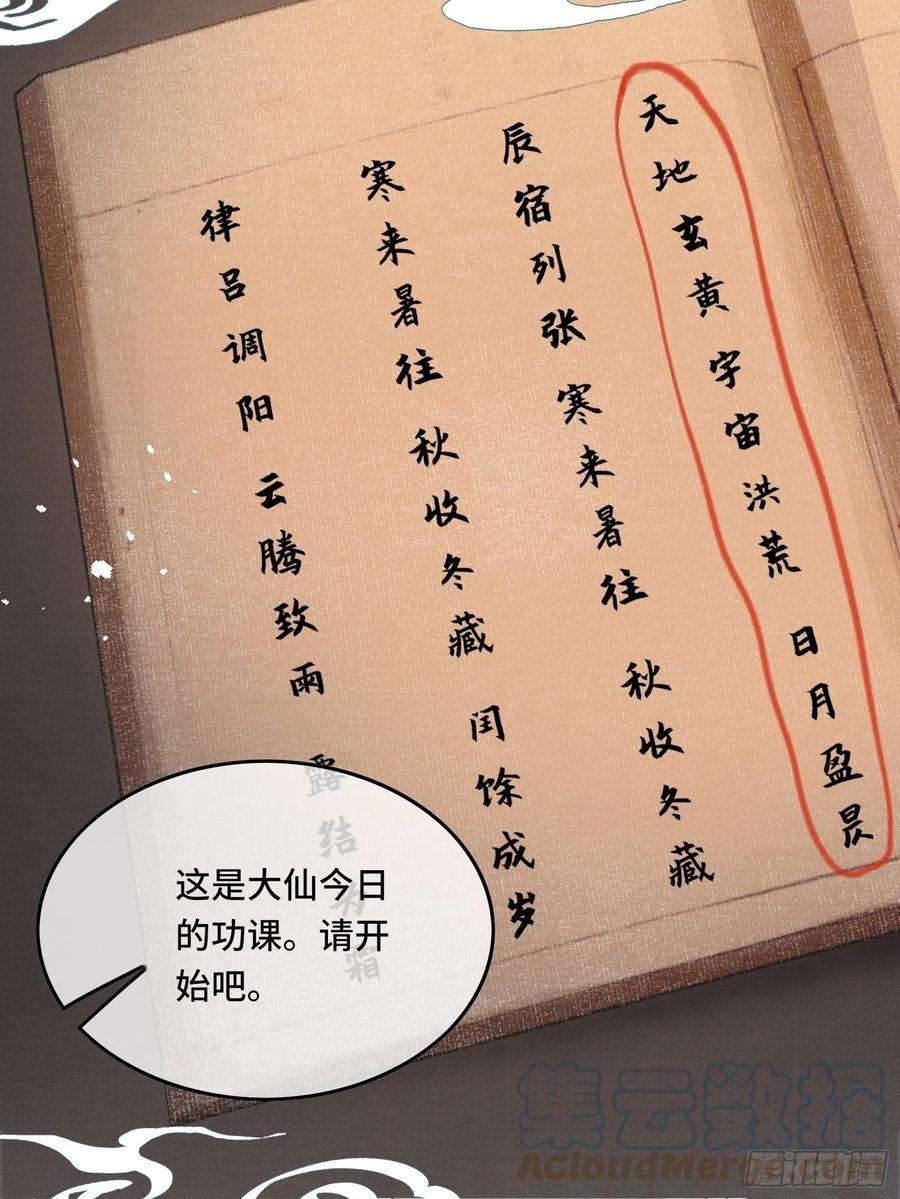 天地玄黄 宇宙洪荒 日月盈昃
辰宿列张 寒来暑往 秋收冬藏
寒来暑往 秋收冬藏 闰馀成岁
律吕调阳 云腾致雨 露结为霜
这是大仙今日
的功课。请开
始吧。
集云数据
AcloudMerge.com